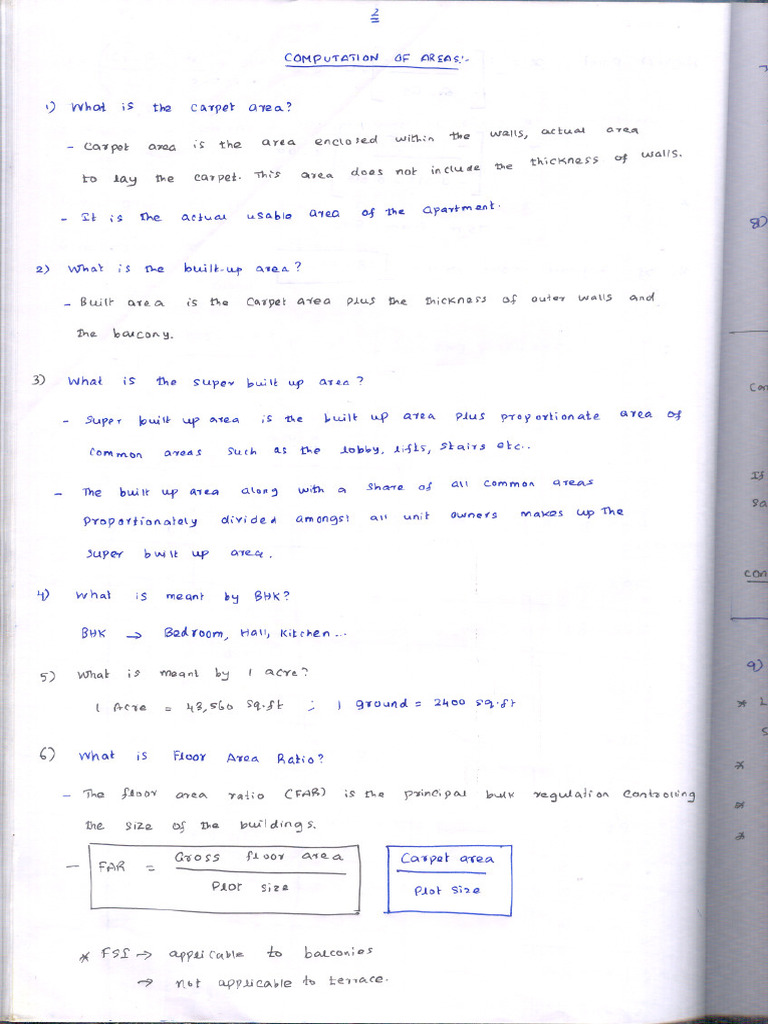 2
COMPUTATION OF AREAS:-
1) What is the carpet area?
- Carpet area is the area enclosed within the walls, actual area
to lay the carpet. This area does not include the thickness of walls.
- It is the actual usable area of the apartment.
2) What is the built-up area?
- Built area is the Carpet area plus the thickness of outer walls and
the balcony.
3) What is the super built up area?
- Super built up area is the built up area plus proportionate area of
common areas such as the lobby, lifts, stairs etc..
- The built up area along with a share of all common areas
proportionately divided amongst all unit owners makes up the
super built up area.
4) What is meant by BHK?
BHK → Bedroom, Hall, Kitchen...
5) What is meant by 1 acre?
1 Acre = 43,560 sq.ft ; 1 ground = 2400 sq.ft
6) What is Floor Area Ratio?
- The floor area ratio (FAR) is the principal bulk regulation controlling
the size of the buildings.
- FAR = Gross floor area
Plot size
Carpet area
Plot size
* FSI → applicable to balconies
→ not applicable to terrace.
8)
If
9)
*
*
*
*